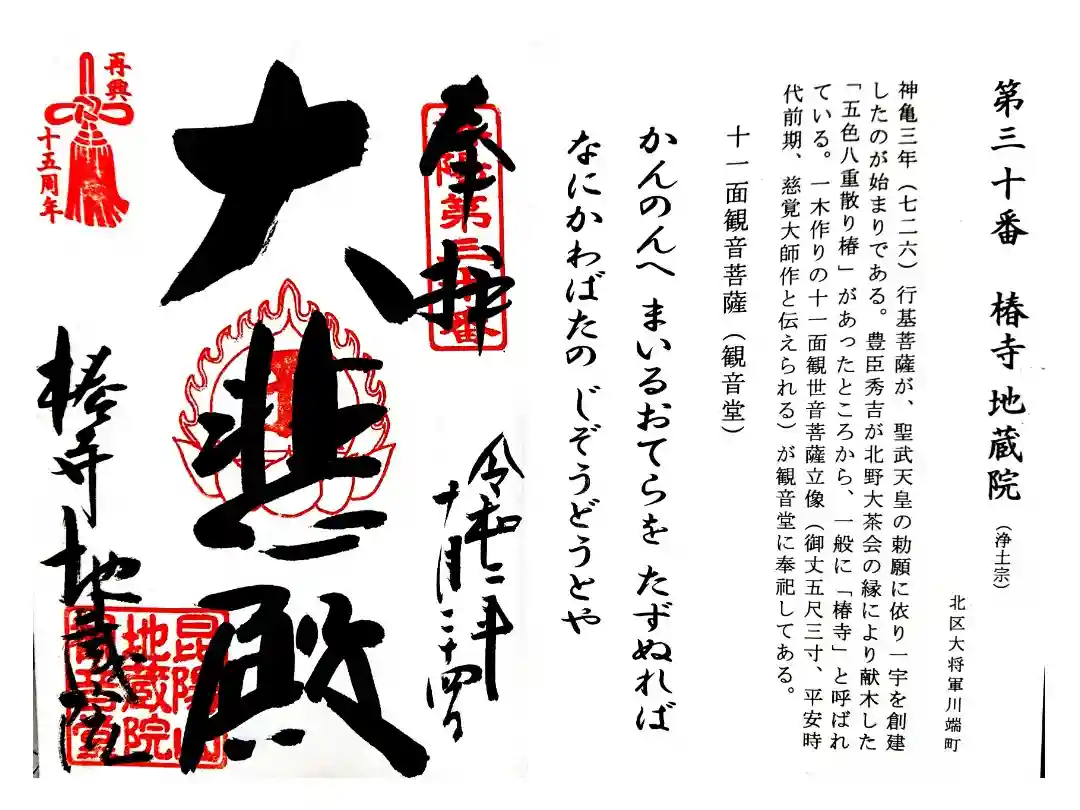 第三十番　椿寺地蔵院（浄土宗）
北区大将軍川端町
神亀三年（七二六）行基菩薩が、聖武天皇の勅願に依り一宇を創建
したのが始まりである。豊臣秀吉が北野大茶会の縁により献木した
「五色八重散り椿」があったところから、一般に「椿寺」と呼ばれ
ている。一木作りの十一面観世音菩薩立像（御丈五尺三寸、平安時
代前期、慈覚大師作と伝えられる）が観音堂に奉祀してある。
十一面観音菩薩（観音堂）
かんのんへ　まいるおてらを　たずぬれば
なにかわばたの　じぞうどうとや
奉拝
洛陽第三十番
令和二年
十月二十四日
大悲殿
椿寺地蔵院
昆陽山
地蔵院
観音堂
再興
十五周年